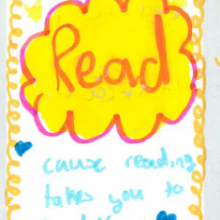 Read
cause reading
takes you to